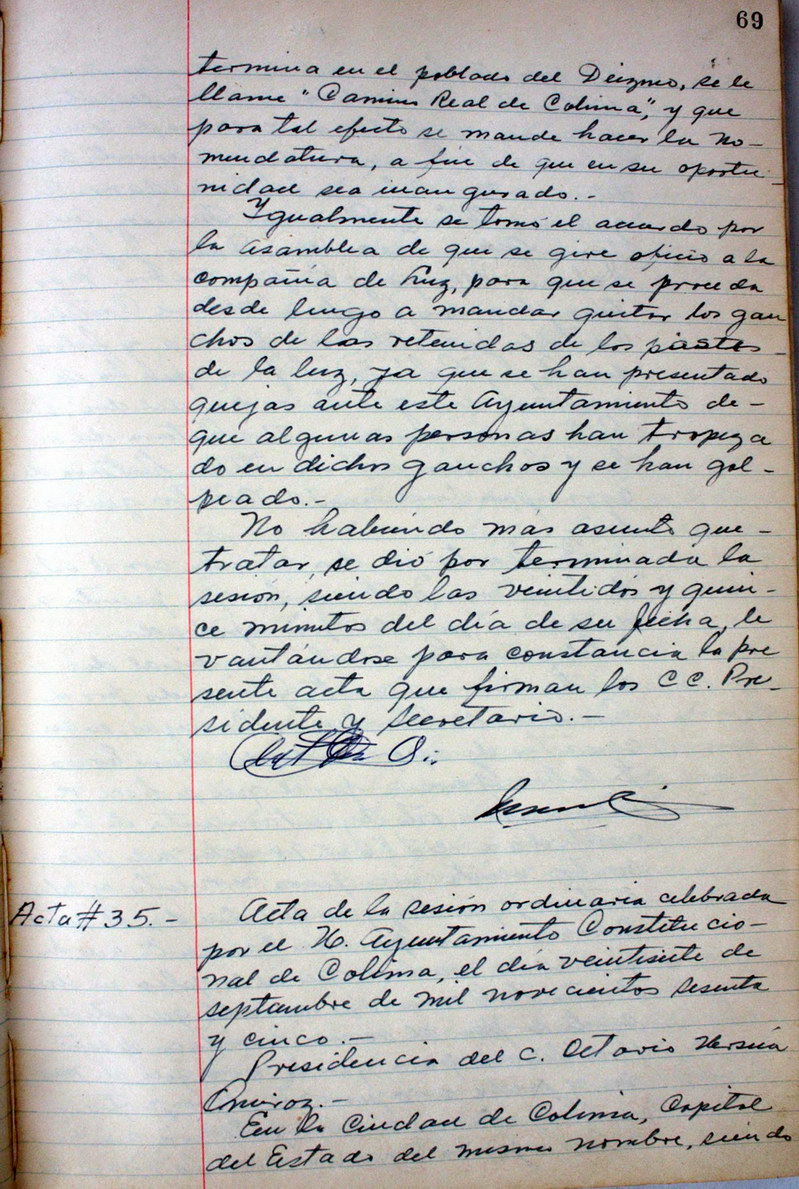 69
termina en el poblado del Diezmo, se le
llame "Camino Real de Colima", y que
para tal efecto se mande hacer la no-
menclatura, a fin de que en su oportu-
nidad sea inaugurado.-
Ygualmente se tomó el acuerdo por
la asamblea de que se gire oficio a la
compañia de Luz, para que se proceda
desde luego a mandar quitar los gan
chos de las retenidas de los postes-
de la luz, ya que se han presentado
quejas ante este Ayuntamiento de-
que algunas personas han tropeza
do en dichos ganchos y se han gol-
peado.-
No habiendo más asunto que-
tratar, se dió por terminada la
sesión, siendo las veintidós y quin-
ce minutos del día de su fecha, le
vantándose para constancia la pre
sente acta que firman los CC. Pre-
sidente y Secretario.-
Acta # 35.-
Acta de la sesión ordinaria celebrada
por el H. Ayuntamiento Constitucio-
nal de Colima, el día veintisiete de
septiembre de mil novecientos sesenta
y cinco.-
Presidencia del C. Octavio
En la Ciudad de Colima, Capital
del Estado del mismo nombre, siendo